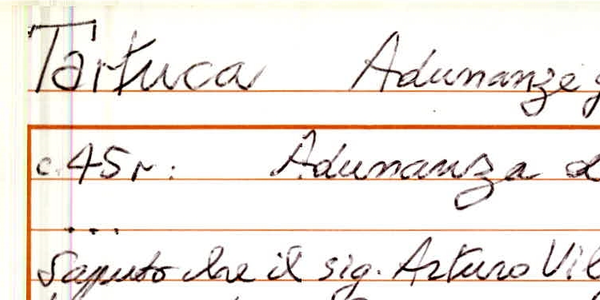 Tartuca Adunanze
c. 45r. Adunanza d
...
Saputo che il sig. Arturo Vil